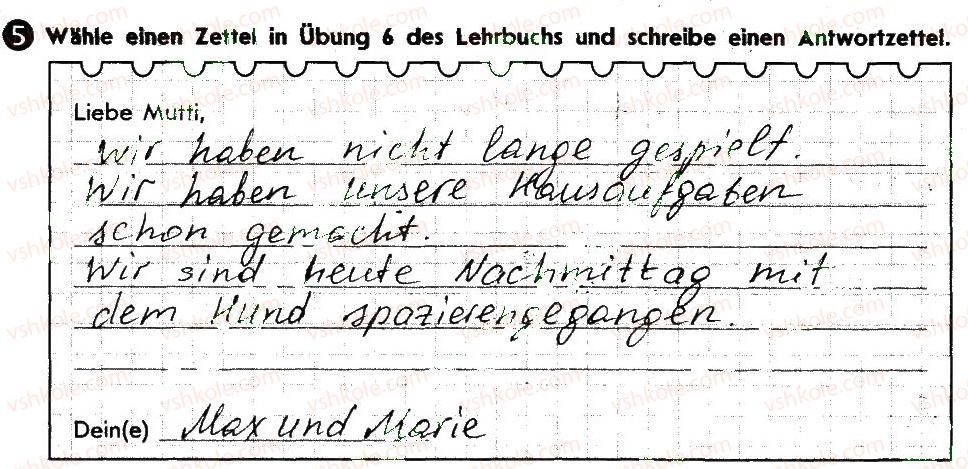 5 Wähle einen Zettel in Übung 6 des Lehrbuchs und schreibe einen Antwortzettel.
Liebe Mutti,
wir haben nicht lange gespielt.
Wir haben unsere Hausaufgaben
schon gemacht.
Wir sind heute Nachmittag mit
dem Hund spazierengegangen.
Dein(e) Max und Marie